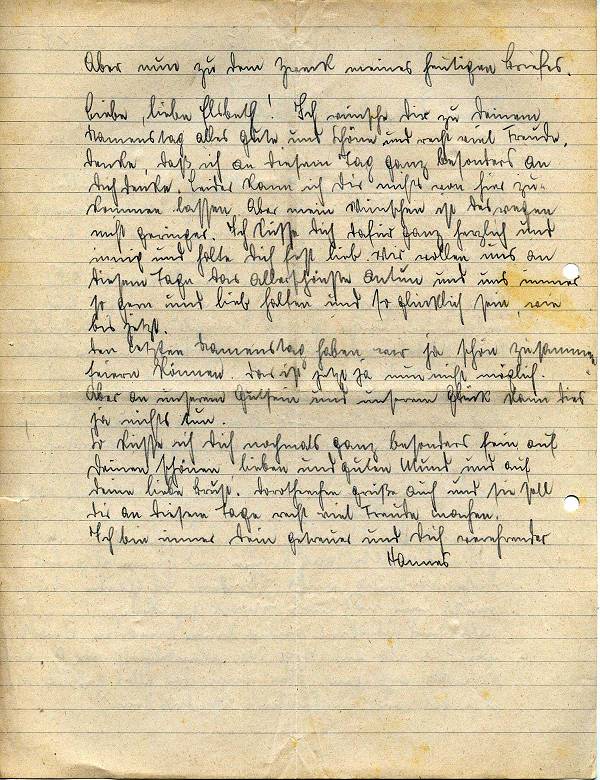 Aber nun zu dem Zweck meines heutigen Briefes.
Liebe, liebe Elsbeth! Ich wünsche Dir zu Deinem
Namenstag alles Gute und Schöne und recht viel Freude,
denke, daß ich an diesem Tag ganz besonders an
Dich denke. Leider kann ich Dir nichts von hier zu-
kommen lassen. Aber mein Wünschen ist deswegen
nicht geringer. Ich küsse Dich dafür ganz herzlich und
innig und halte Dich fest lieb. Wir wollen uns an
diesem Tage das Allerschönste antun und uns immer
so gern und lieb halten und so glücklich sein, wie
bis jetzt.
Den letzten Namenstag haben wir ja schön zusammen
feiern können. Das ist jetzt ja nun nicht möglich.
Aber an unserem Gutsein und unserem Glück kann dies
ja nichts tun.
So küsse ich Dich nochmals ganz besonders fein auf
Deinen schönen, lieben und guten Mund und auf
Deine liebe Brust. Dorothechen grüße auch und sie soll
Dir an diesem Tage recht viel Freude machen.
Ich bin immer Dein getreuer und Dich verehrender
Hannes